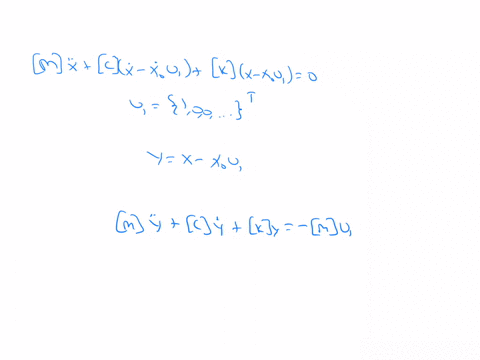 [M] ẍ + [C](ẋ - ẋ₀ U₁) + [K](x - x₀ U₁) = 0
U₁ = {1,0,0,...}ᵀ
y = x - x₀ U₁
[M] ÿ + [C] ẏ + [K] y = - [M] U₁